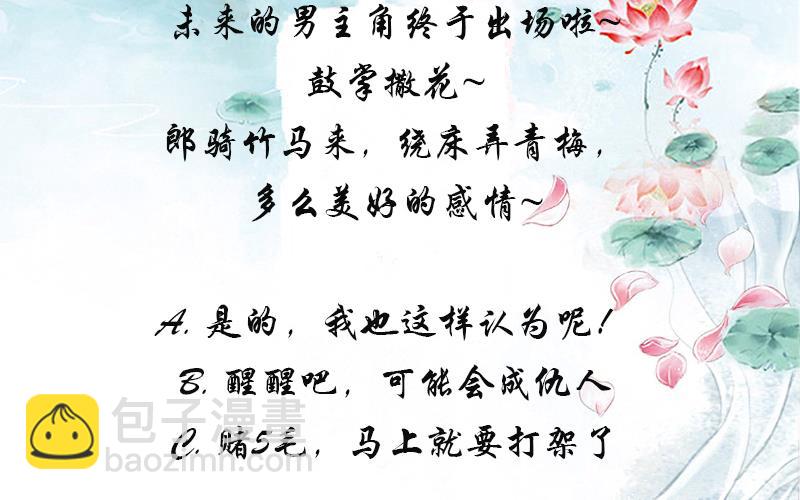 未来的男主角终于出场啦~
鼓掌撒花~
郎骑竹马来，绕床弄青梅，
多么美好的感情~
A. 是的，我也这样认为呢！
B. 醒醒吧，可能会成仇人
C. 赌5毛，马上就要打架了
包子漫畫
baozimh.com